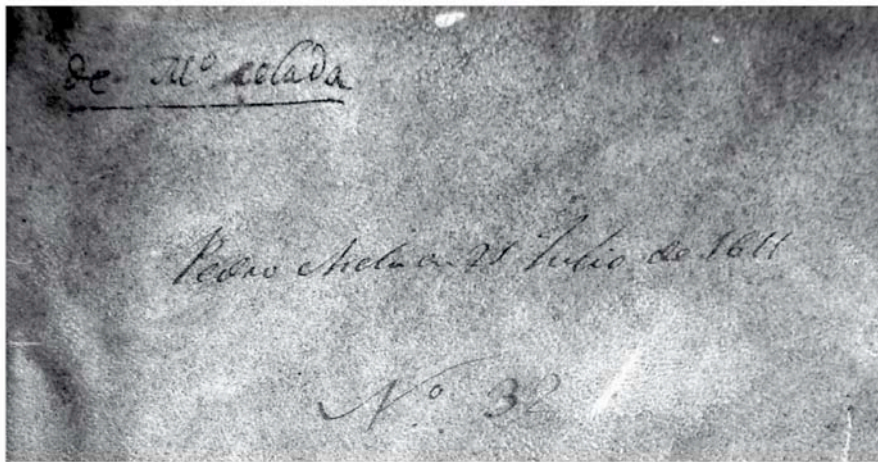 de Mº colada
Pedro en 21 Julio de 1611
Nº 32